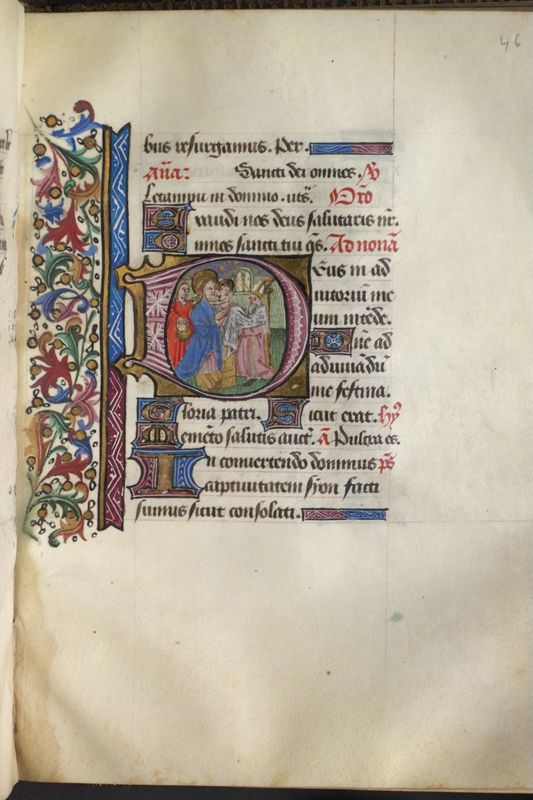 46
bus resurgamus. Per.
Añа: Sancti dei omnes. ℣
Letamini in domino. uts̃. Orõ
Exaudi nos deus salutaris nr̃.
Omnes sancti tui q̃s. Ad nonã
Deus in ad
iutoriũ me
um intẽde.
Dñe ad
adiuuãdũ
me festina.
Gloria patri. Sicut erat. hỹ
Memẽto salutis auct̃. ã Pulcra es.
In conuertendo dominus p̃s
captiuitatem syon facti
sumus sicut consolati.